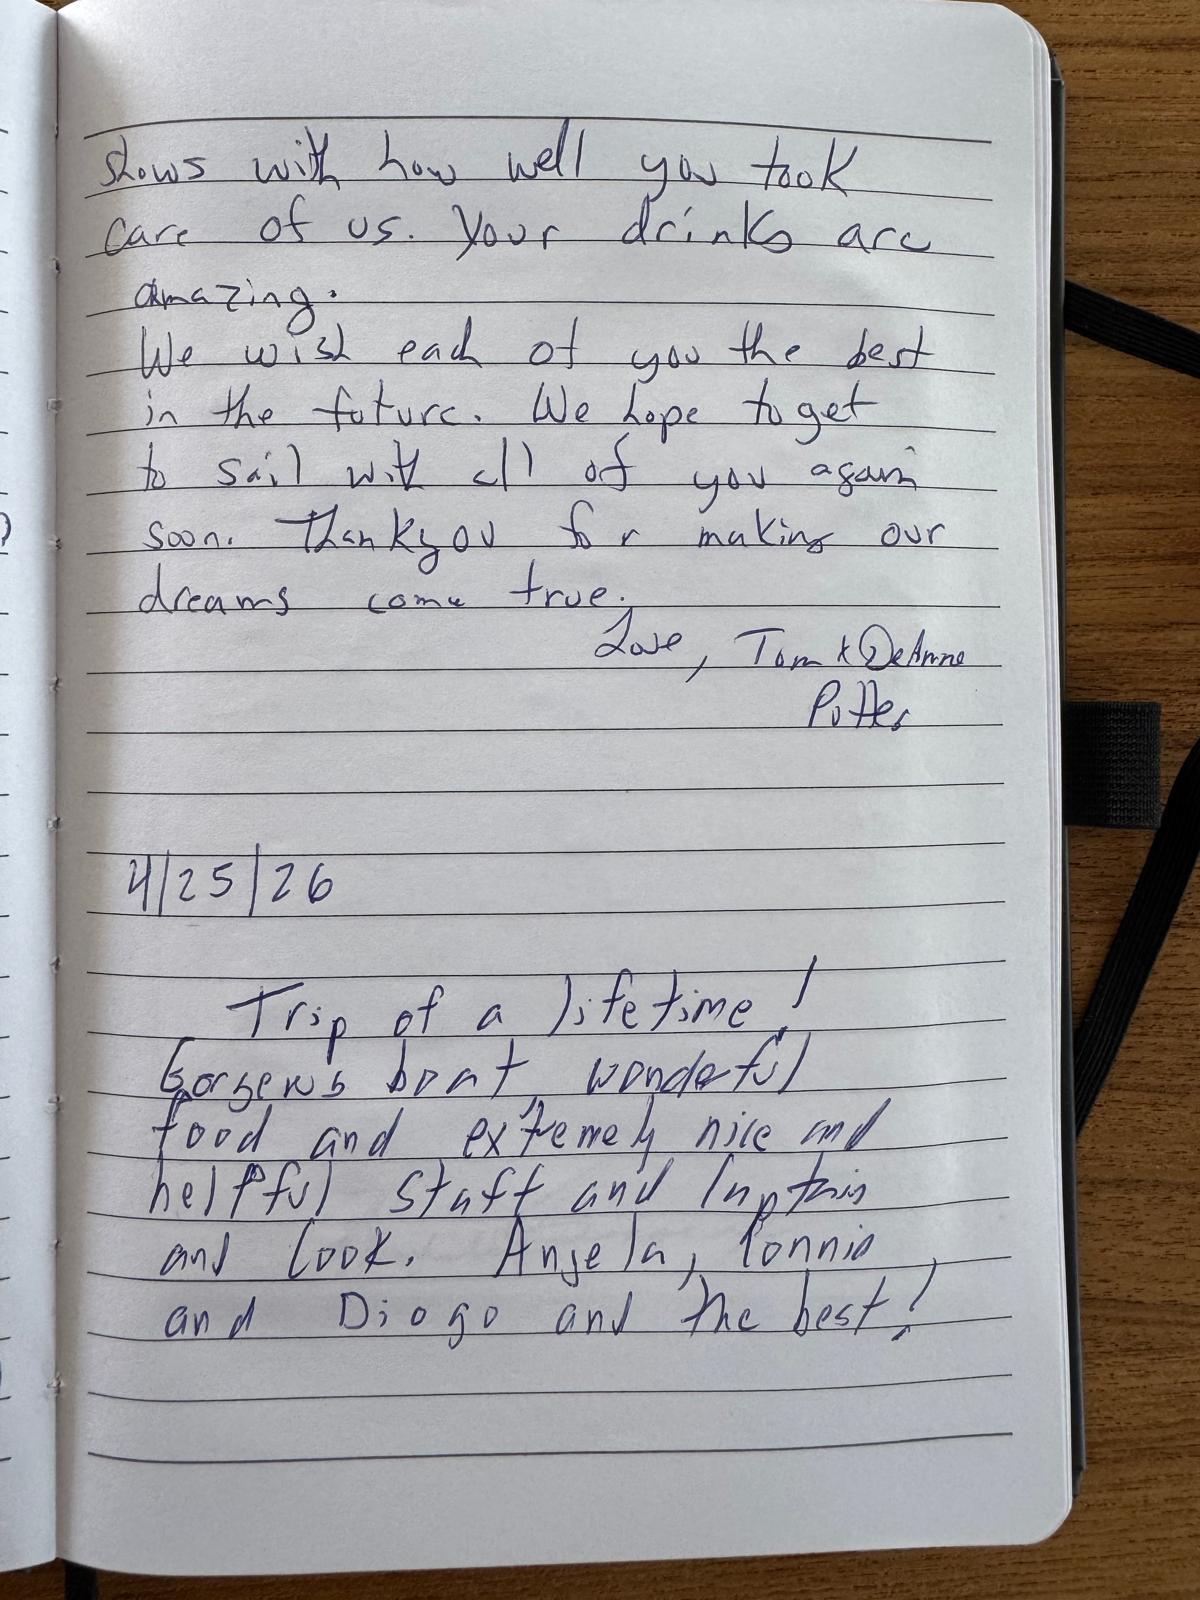 shows with how well you took
care of us. Your drinks are
amazing.
We wish each of you the best
in the future. We hope to get
to sail with all of you again
soon. Thank you for making our
dreams come true.
Love, Tom & DeAnne
Potter
4/25/26
Trip of a lifetime!
Gorgeous boat, wonderful
food and extremely nice and
helpful staff and Captain
and Cook. Angela, Connie,
and Diogo and the best!